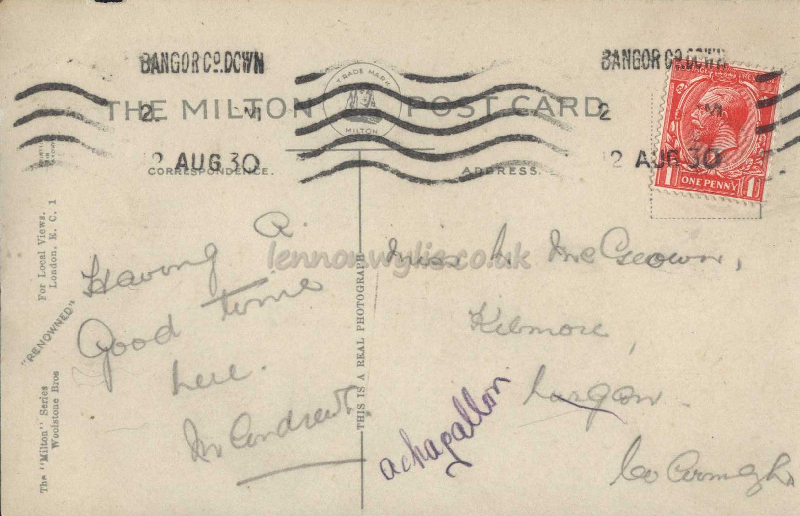 BANGOR Co. DOWN
BANGOR Co. DOWN
THE MILTON POST CARD
TRADE MARK
MILTON
2 AUG 30
2 AUG 30
ONE PENNY
1 1
CORRESPONDENCE.
ADDRESS.
lennonwylie.co.uk
Having A
Good time
here.
M Andrews
Miss A McGeown,
Kilmore,
Lurgan
achagallon
Co Armagh
THIS IS A REAL PHOTOGRAPH
For Local Views.
London. E. C. 1
"RENOWNED"
The "Milton" Series
Woolstone Bros